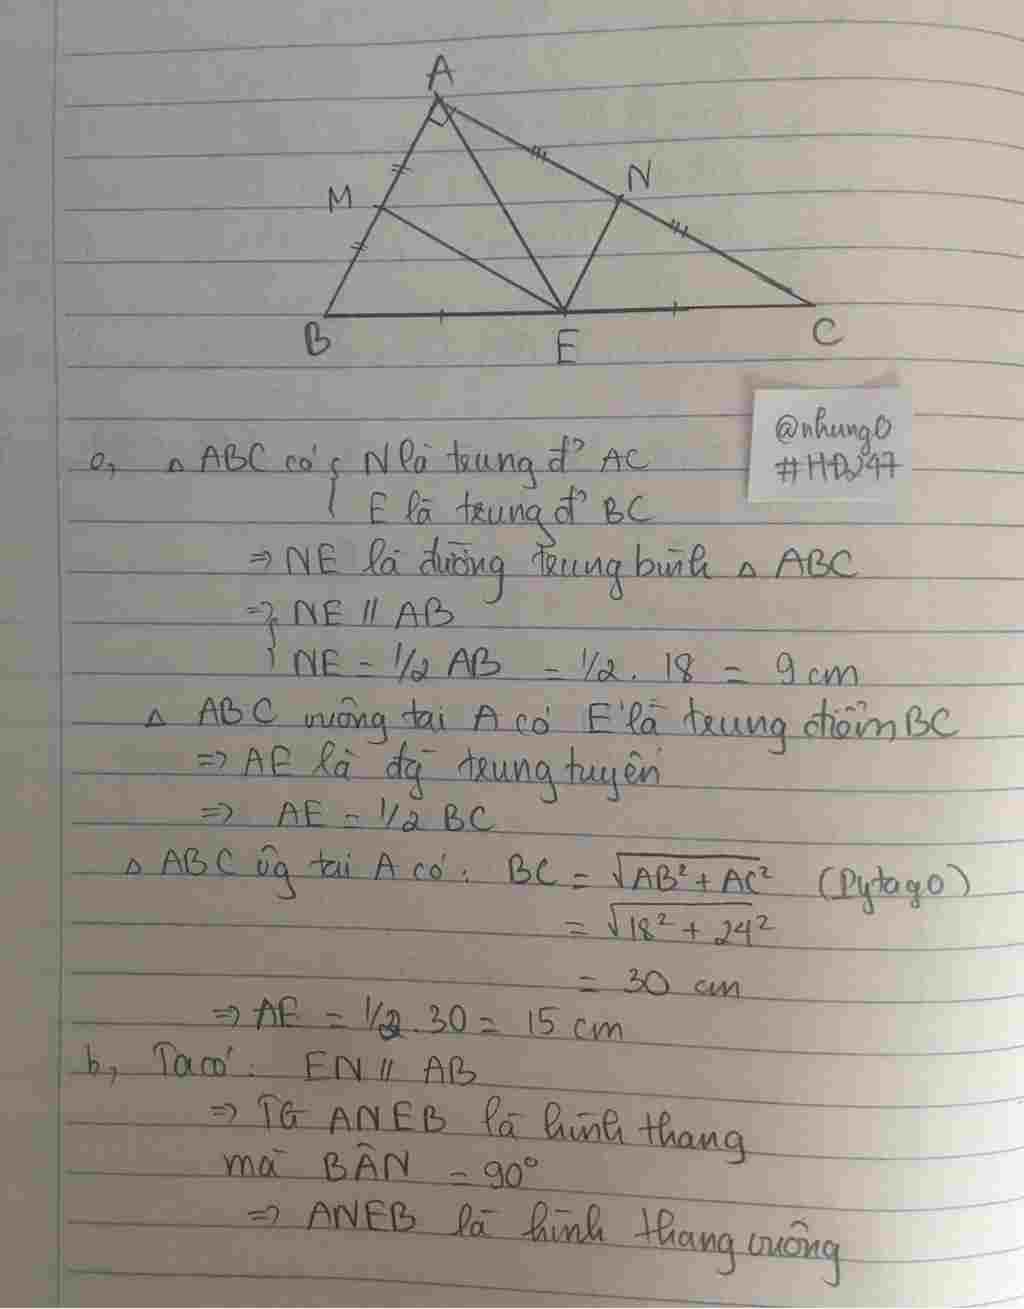 A
M
N
B
E
C
@nhung0
#HDJ247
a, △ ABC có { N là trung đ' AC
E là trung đ' BC
=> NE là đường trung bình △ ABC
=> { NE // AB
NE = 1/2 AB = 1/2 . 18 = 9 cm
△ ABC vuông tại A có E là trung điểm BC
=> AE là đg trung tuyến
=> AE = 1/2 BC
△ ABC ūg tại A có : BC = √AB² + AC² (Pytago)
= √18² + 24²
= 30 cm
=> AE = 1/2 . 30 = 15 cm
b, Ta có : EN // AB
=> TG ANEB là hình thang
mà BÂN = 90°
=> ANEB là hình thang vuông